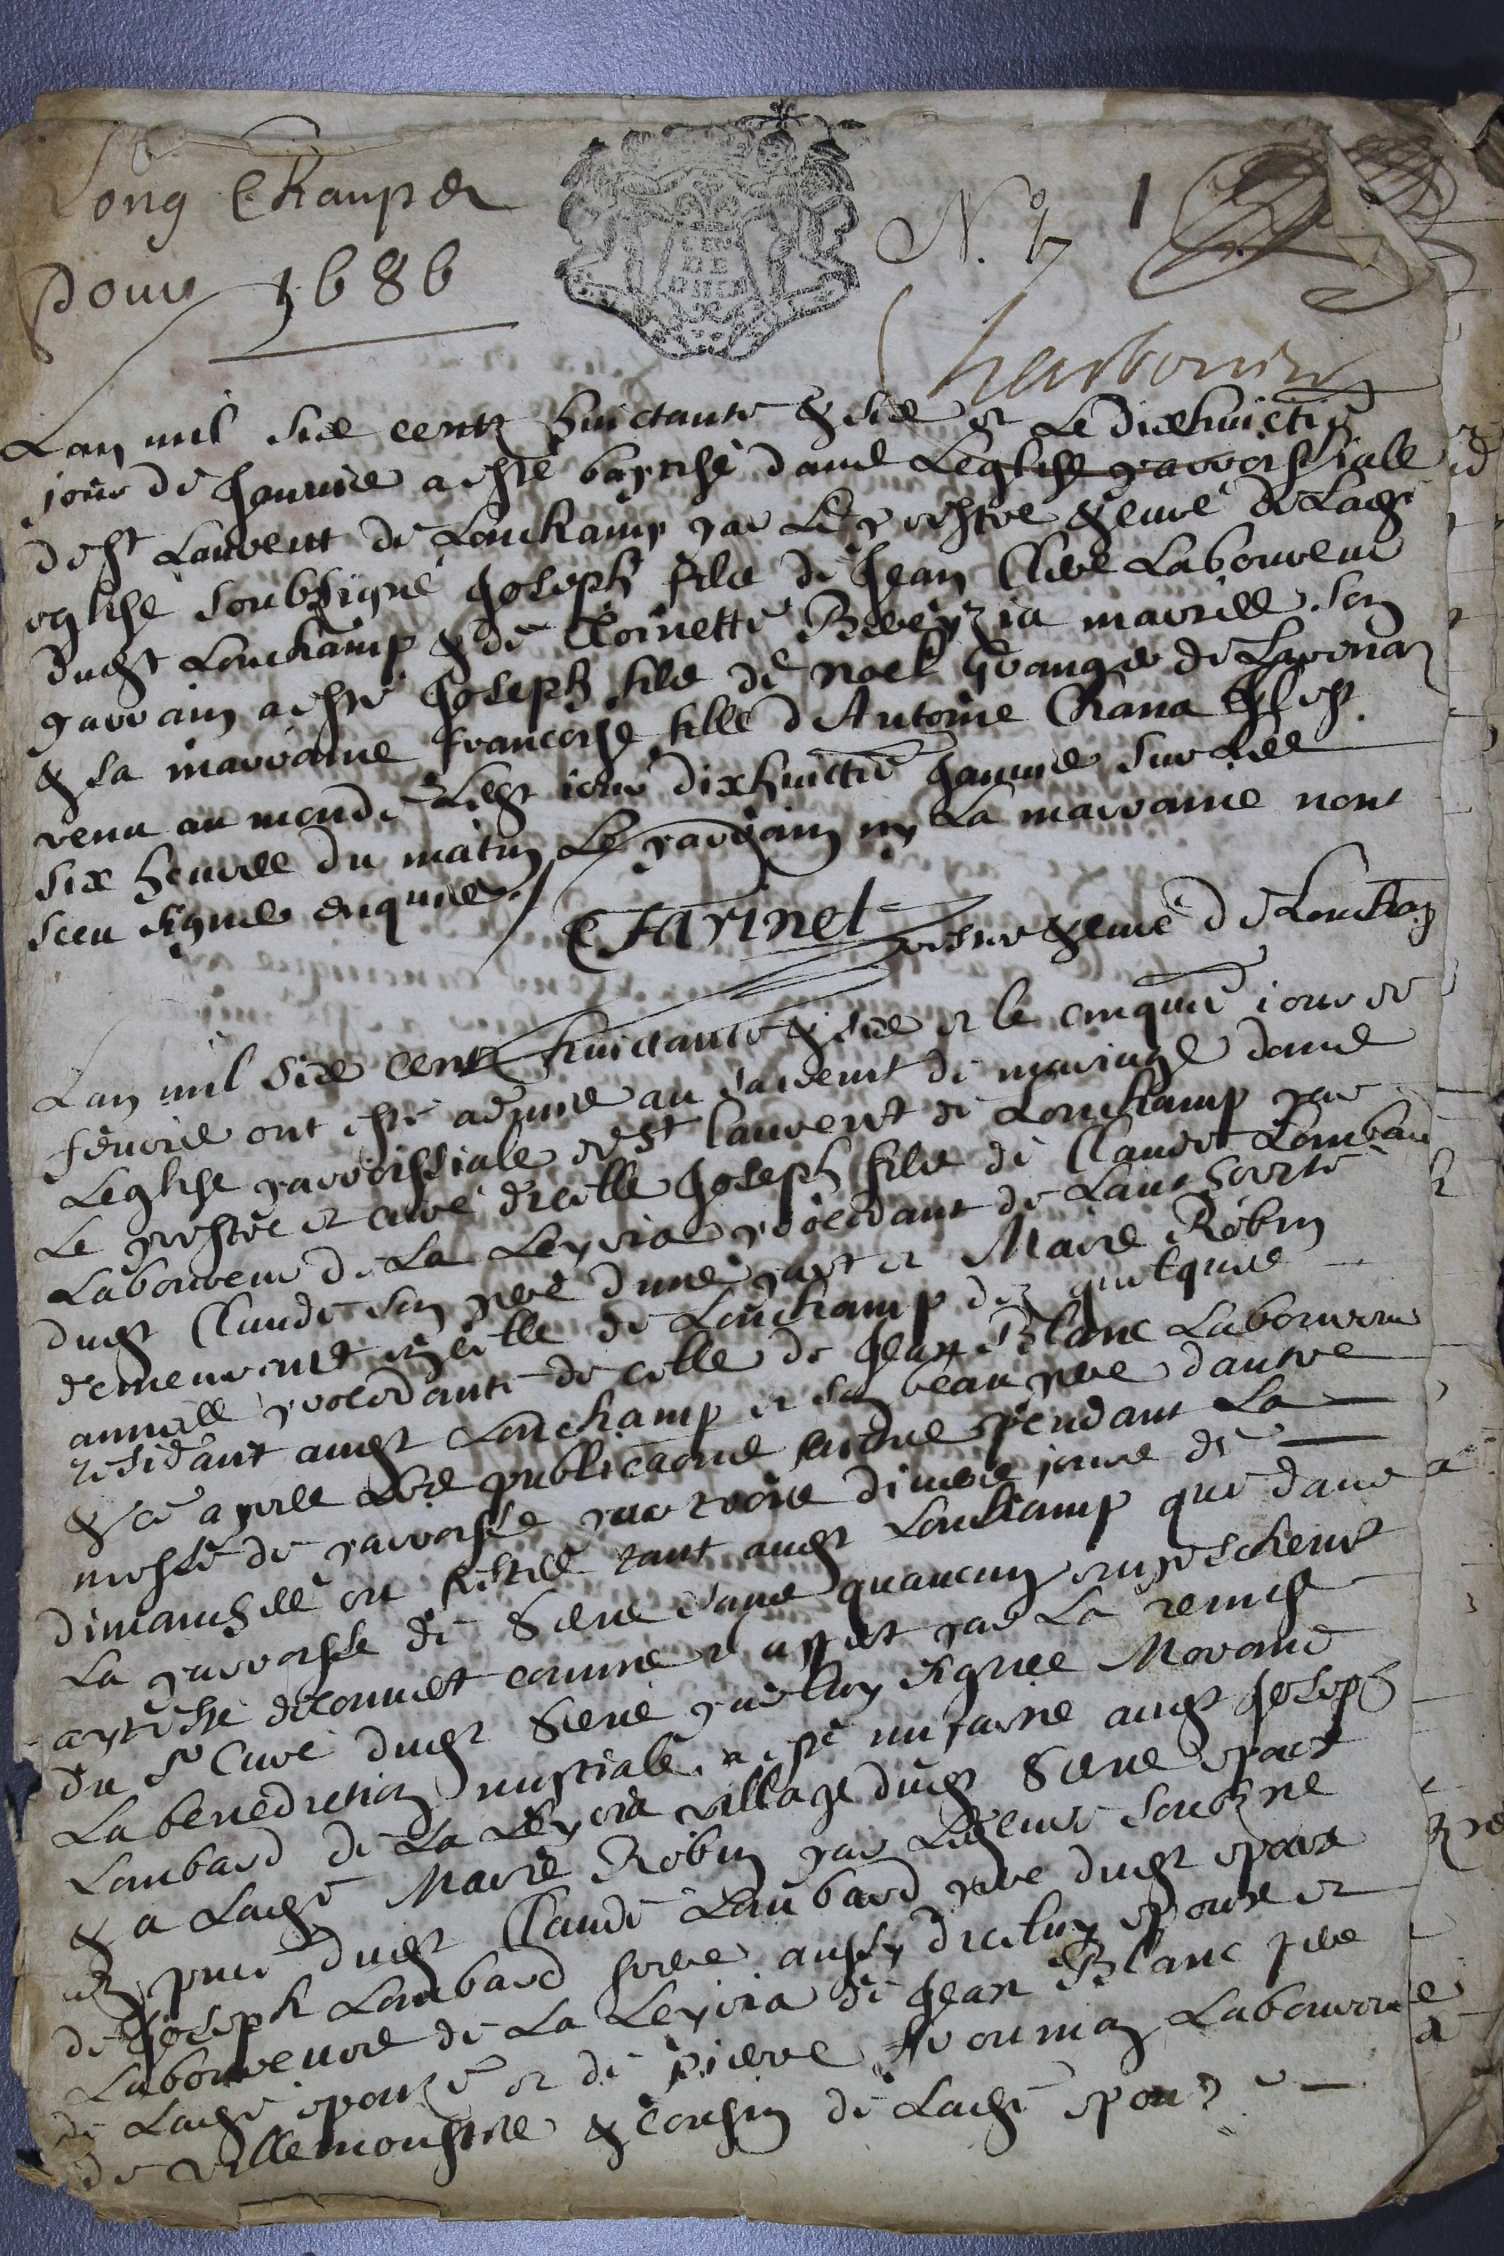 Long Champ &
pour 1686
N. 1
Charbonier
Lan mil six centz huictante & six et Le dixhuictie
jour de Janvier a esté baptisé dans Leglise parroissiale
de st Laurent de Lonchamp par Led prestre & curé de Lade
eglise soubsigné Joseph filz de Jean Claude Laboureur
dudt Lonchamp & de Toinette mariez. son
parrain a esté Joseph filz de Noel Grangier de
& sa marraine Francoise fille d'Antoine Chana Il est
venu au monde Ledt jour dixhuictie Janvier sur Les
six heures du matin Le parrain ny La marraine nont
sceu signer enquis
Charinet prestre & curé de Lonchap
Lan mil six centz huictante & six et le cinquie jour de
fevrier ont esté admis au sacrement de mariage dans
Leglise parroissiale de st Laurent de Lonchamp par
Le prestre et curé dicelle Joseph filz de Claude Lombard
Laboureur de La Leyria procedant de Lauthorité
dudt Claude son pere dune part et Marie Robin
demeurant en celle de Lonchamp dez quelques
années procedante de celle de Jean Blanc Laboureur
residant audt Lonchamp et son beau pere dautre
& ce apres Les publicaons faictes pendant La
messe de parroisse par trois divers jours de
dimanches ou festes tant audt Lonchamp que dans
La parroisse de sans quaucun empeschement
ayt esté decouvert comme il appert par La remise
du Sr Curé dudt par luy signée Morand
La benediction nuptiale a esté impartie audt Joseph
Lombard de La Leyria village dudt epoux
& a Lade Marie Robin par Ledt curé soubzne
en pnce dudt Claude Lombard pere dudt epoux
de Joseph Lombard frere aussy diceluy epoux et
Laboureurs de La Leyria de Jean Blanc pere
de Lade epouze et de Pierre Laboureur
de Villemoustre & cousin de Lade epouze